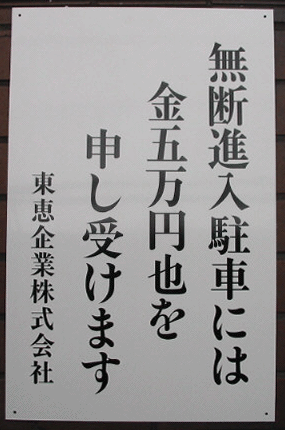 無断進入駐車には
金五万円也を
申し受けます
東恵企業株式会社